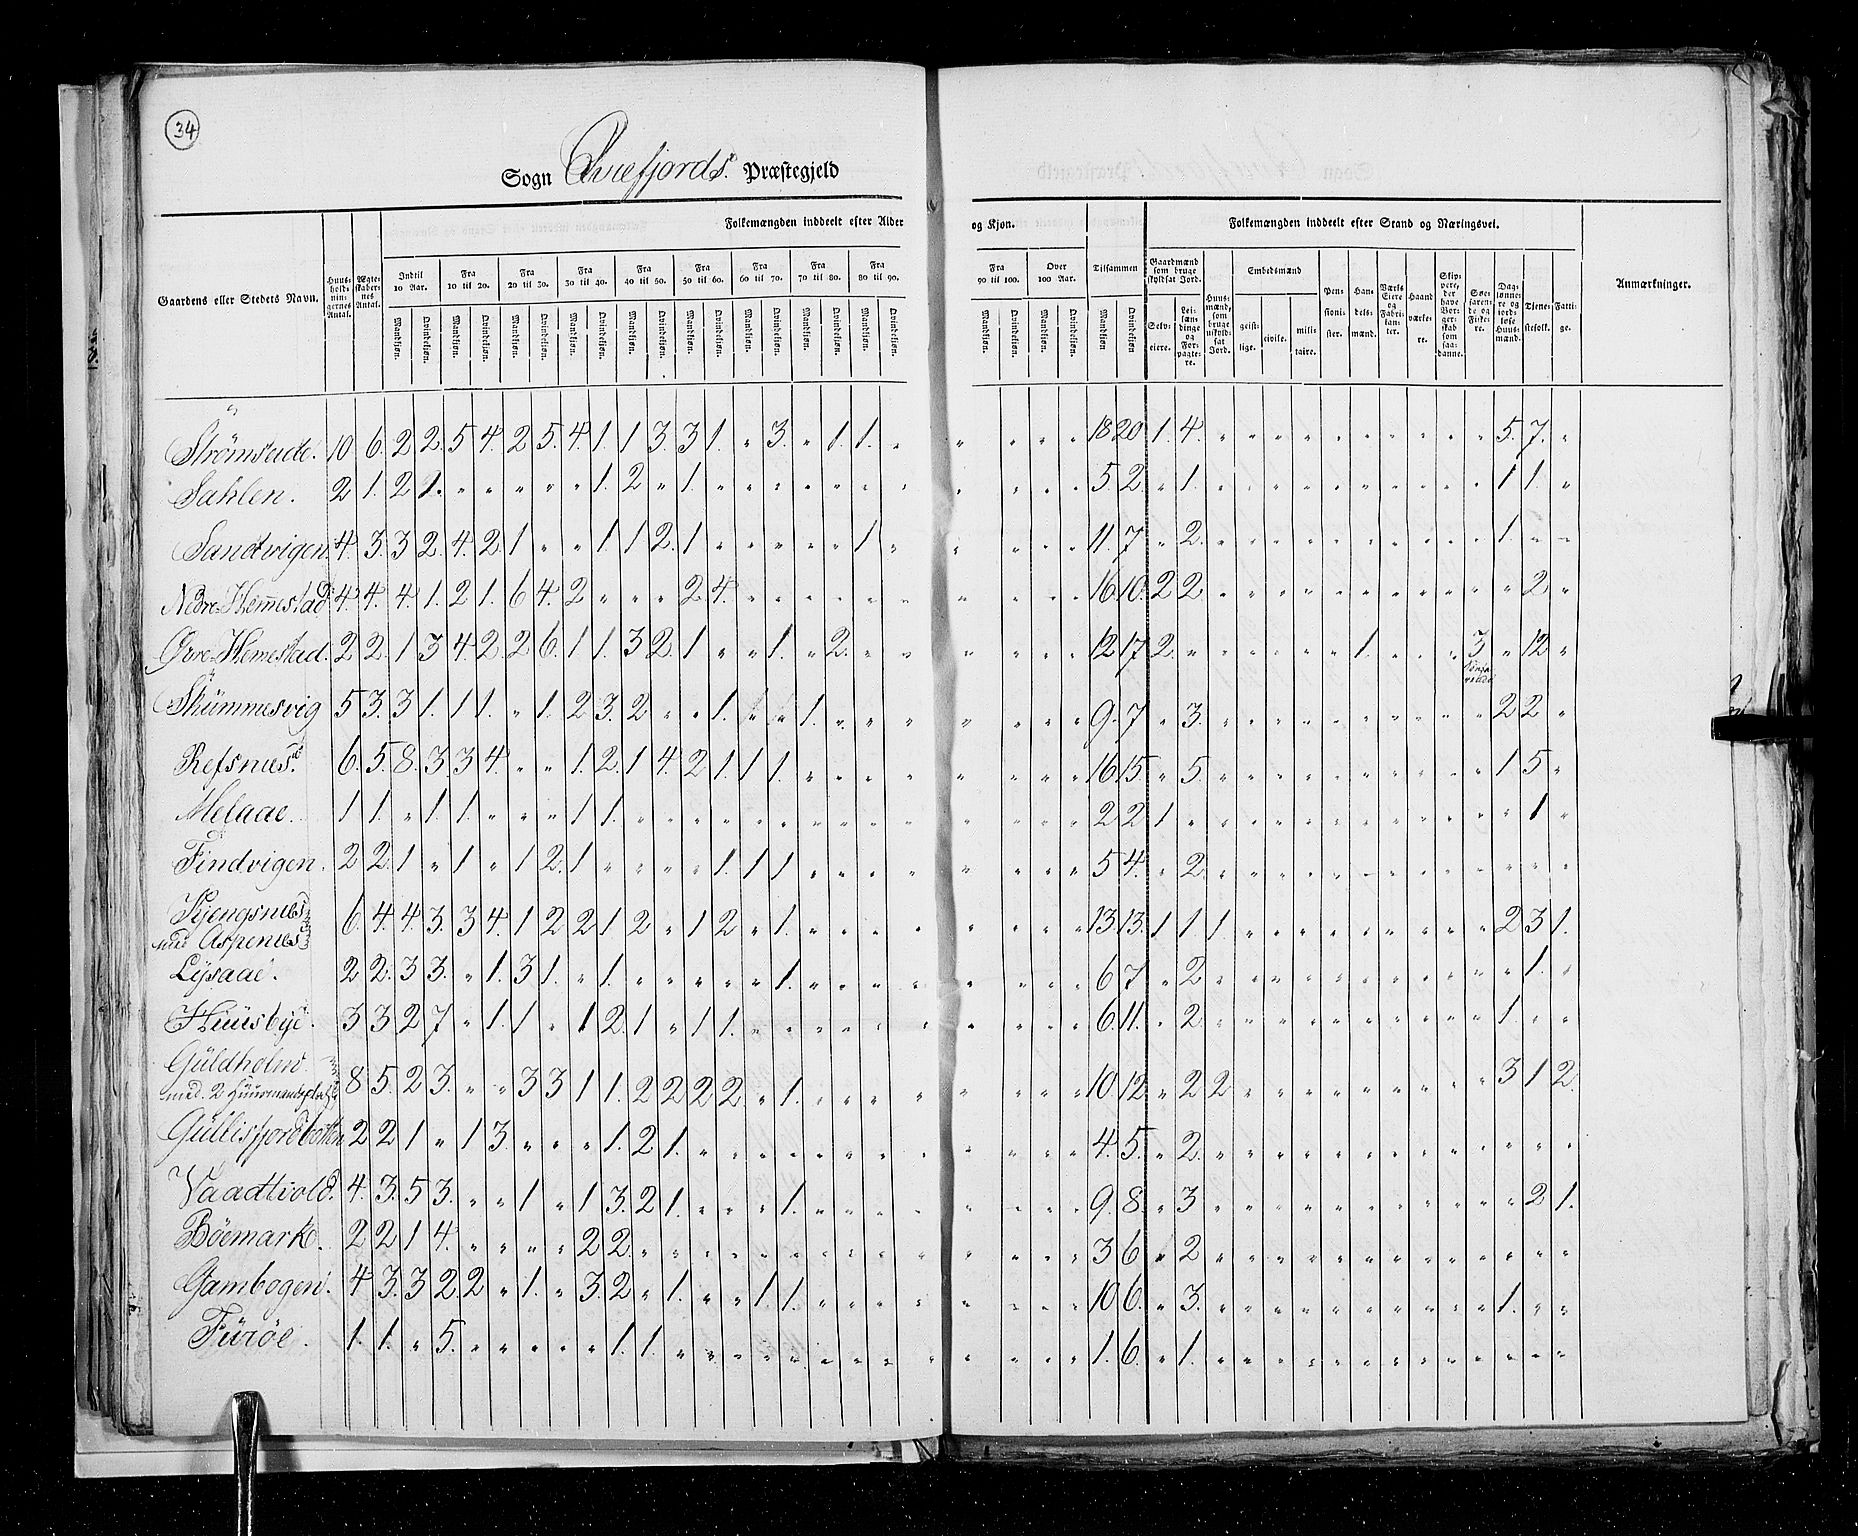 34
Sogn Qvæfjords Præstegjeld
Gaardens eller Stedets Navn.
Huusholdningernes Antal.
Ægteskabernes Antal.
Folkemængden inddeelt efter Alder og Kjøn.
Indtil 10 Aar.
Fra 10 til 20.
Fra 20 til 30.
Fra 30 til 40.
Fra 40 til 50.
Fra 50 til 60.
Fra 60 til 70.
Fra 70 til 80.
Fra 80 til 90.
Fra 90 til 100.
Over 100 Aar.
Tilsammen
Mandkjøn. Qvindekjøn.
Folkemængden inddeelt efter Stand og Næringsvei.
Gaardmænd som bruge skyldsat Jord.
Selveiere.
Leilændinge og Forpagtere.
Huusmænd, som bruge uskyldsat Jord.
Embedsmænd
geistlige.
civile.
militaire.
Pensionister.
Handelsmænd.
Værkseiere og Fabrikanter.
Haandværkere.
Skippere, der have Borgerskab som saadanne.
Søefarende og Fiskere.
Daglønnere og jordløse Huusmænd.
Tjenestefolk.
Fattige.
Anmærkninger.
Strømseide. 10 6. 2 2. 5 4. 2 5. 4. 1. 1 3. 3 1. " 3. " 1. 1. " " " " " 18 20 1. 4. " " " " " " " " " " 5. 7. "
Sahlen. 2 1. 2 1. " " " " " 1. 2 " 1. " " " " " " " " " " " 5 2 " 1. " " " " " " " " " " 1 1. "
Sandvigen. 4. 3. 3 2. 4. 2. 1 " " 1. 1 2. 1 " " " " " 1. " " " " " 11. 7. " 2. " " " " " " " " " " 1. " "
Nedre Hemmestad 4. 4. 4. 1. 2 1. 6 4. 2 " " " 2 4. " " " " " " " " " " 16. 10. 2 2. " " " " " " " " " " " 2. "
Øvre Hemestad. 2 2. 1 3 4. 2. 2 6. 1 1. 3 2. 1 " " 1. " 2. " " " " " " 12 17 2. " " " " " " 1. " " " 3 " 12 "
Skummesvig 5 3. 3 1. 1 1. " 1. 2 3. 2 " " 1. " " 1. " " " " " " " 9. 7. " 3. " " " " " " " " " " 2 2. "
Refsnæs. 6. 5. 8. 3. 3 4. " " 1. 2. 1 4. 2 1. 1 1. " " " " " " " " 16 15. " 5. " " " " " " " " " " 1 5. "
Melaae. 1 1. " 1. 1. " " " 1 1. " " " " " " " " " " " " " " 2 2 1 " " " " " " " " " " " " 1. "
Findvigen. 2 2. 1 " 1. " 1 2. 1 " " " " 1. 1 1. " " " " " " " " 5 4. " 2. " " " " " " " " " " " " "
Kjengsnæs
med Aspenæs 6. 4. 4. 3. 3 4. 1 2 2 1. 2 " 1 2. " 1. " " " " " " " " 13 13. 1 1. 1 " " " " " " " " " 2 3 1.
Lysaae. 2 2. 3 3. " 1. 3 1. " 1. " " " " " 1. " " " " " " " " 6 7 " 2. " " " " " " " " " " " 1. "
Huusbye. 3 3 2 7 " 1. 1 " 1 2. 1 " 1 1. " " " " " " " " " " 6 11. " 2. " " " " " " " " " " 1. " "
Guldholm
med 2 Huusmandspladse 8 5. 2 3. " " 3 3 1 1. 2 2 2 2. " 1. " " " " " " " " 10 12. " 2 2 " " " " " " " " " 3 1 2.
Gullisfjordbotten 2 2 1 " 1 3. " " " 1. 2 1. " " " " " " " " " " " " 4. 5. " 2. " " " " " " " " " " " " "
Vaadtvold. 4. 3. 5 3. " " 1 " 1 3. 2 1. " " " 1. " " " " " " " " 9. 8. " 3 " " " " " " " " " " " 2 1.
Böemark. 2 2 1 4. " " " " 2 2. " " " " " " " " " " " " " " 3 6. " 2 " " " " " " " " " " " " "
Gambogen. 4 3. 3 2. 2 " 1. " 3. 2. " 1. " " 1. 1. " " " " " " " " 10 6. " 3. " " " " " " " " " " 1. " "
Furöe. 1. 1. " 5. " " " " " 1. 1. " " " " " " " " " " " " " 1. 6. " 1. " " " " " " " " " " " " "